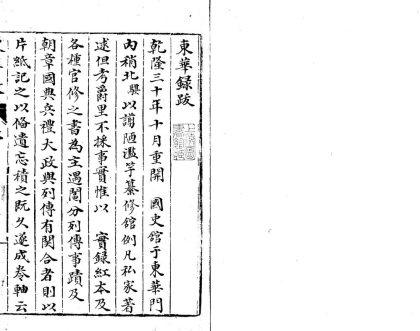 東華錄跋
乾隆三十年十月重開　國史館于東華門
內稍北驥以謭陋濫竽纂修館例凡私家著
述但考爵里不採事實惟以　實錄紅本及
各種官修之書為主遇閣分列傳事蹟及
朝章國典兵禮大政與列傳有関合者則以
片紙記之以俻遺忘積之既久遂成卷軸云